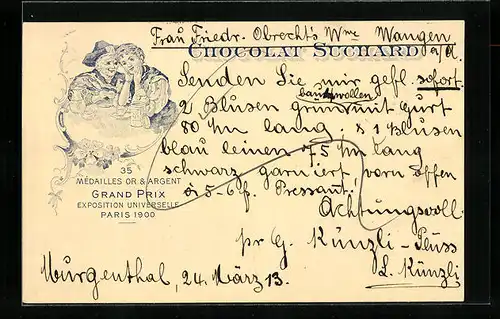 Frau Friedr. Obrecht's Wwe Wangen
a/A.
CHOCOLAT SUCHARD
Senden Sie mir gefl. sofort
baumwollen
2 Blusen grün mit Gurt
80 cm lang; & 1 Blusen
blau leinen 75 cm lang
schwarz garniert vorn offen
à 5-6 f. Pressant.
Achtungsvoll
pr G. Künzli-
L. Künzli
Murgenthal, 24. März 13.
35
MÉDAILLES OR & ARGENT
GRAND PRIX
EXPOSITION UNIVERSELLE
PARIS 1900